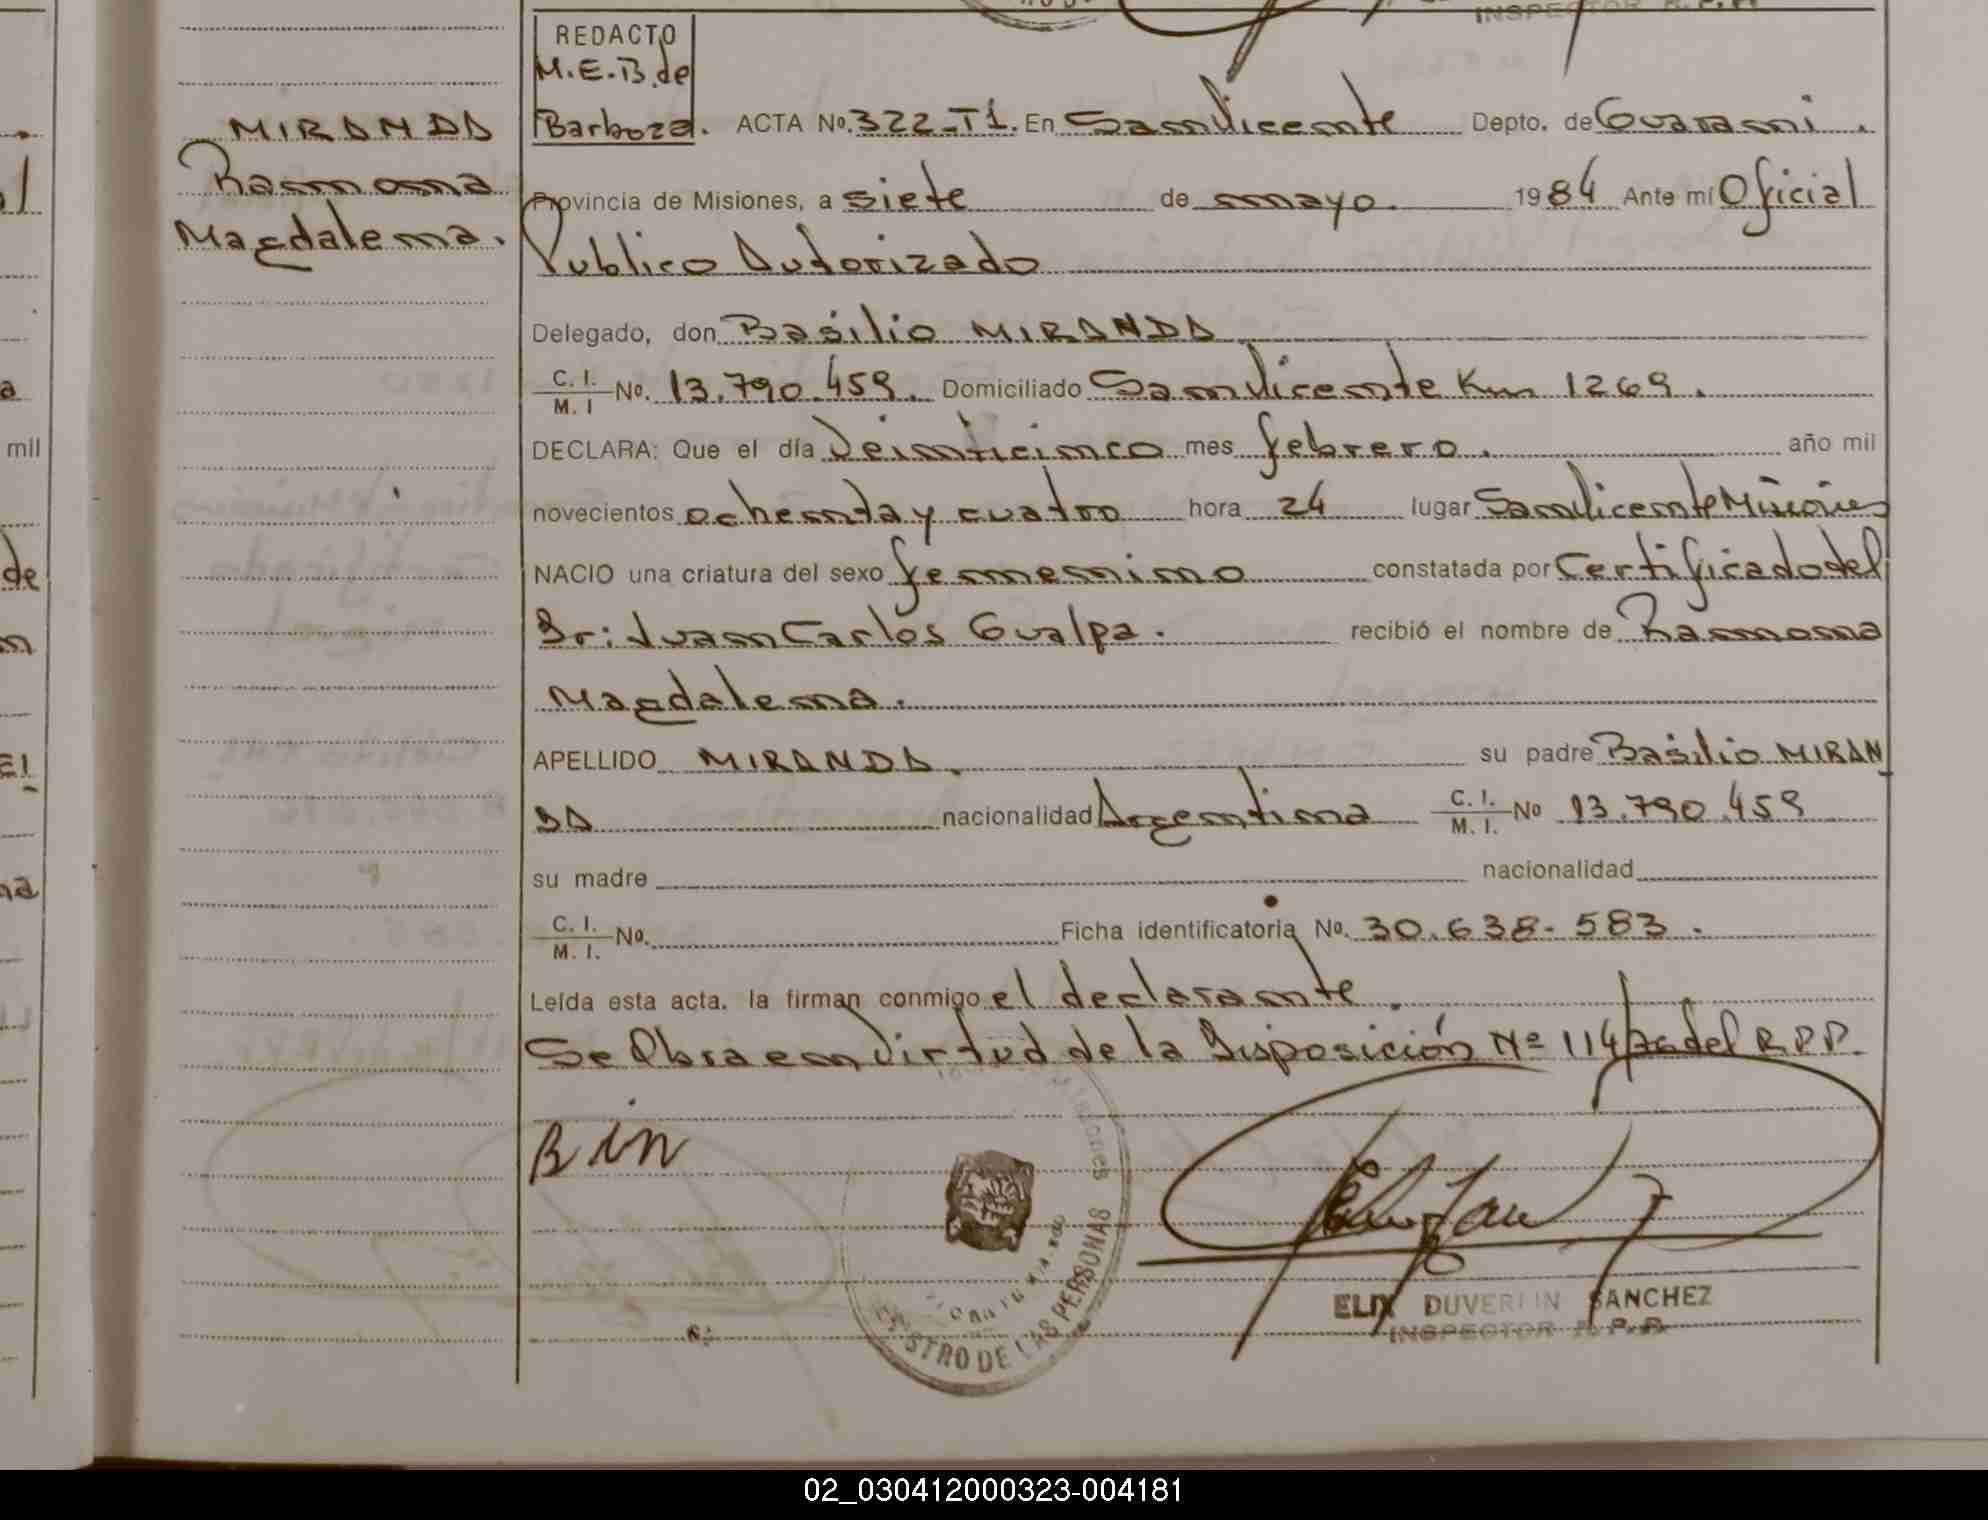 INSPECTOR R.P.P.
REDACTO
M.E.B. de
Barboza.
MIRANDA
Ramona
Magdalena.
ACTA No. 322-T1. En San Vicente Depto. de Guarani.
Provincia de Misiones, a siete de mayo. 1984 Ante mí Oficial
Publico Autorizado
Delegado, don Basilio MIRANDA
C. I. / M. I No. 13.790.459. Domiciliado San Vicente Km 1269.
DECLARA: Que el día Veinticinco mes febrero. año mil
novecientos ochenta y cuatro hora 24 lugar San Vicente Misiones
NACIO una criatura del sexo femenino constatada por Certificado del
Dr: Juan Carlos Gualpa. recibió el nombre de Ramona
Magdalena.
APELLIDO MIRANDA. su padre Basilio MIRAN
DA nacionalidad Argentina C. I. / M. I. No 13.790.459
su madre nacionalidad
C. I. / M. I. No. Ficha identificatoria No. 30.638-583.
Leída esta acta, la firman conmigo el declarante.
Se Obra en virtud de la Disposición Nº 114/76 del R.P.P.
STRO DE LAS PERSONAS
ELIX DUVERLIN SANCHEZ
INSPECTOR R.P.P.
02_030412000323-004181